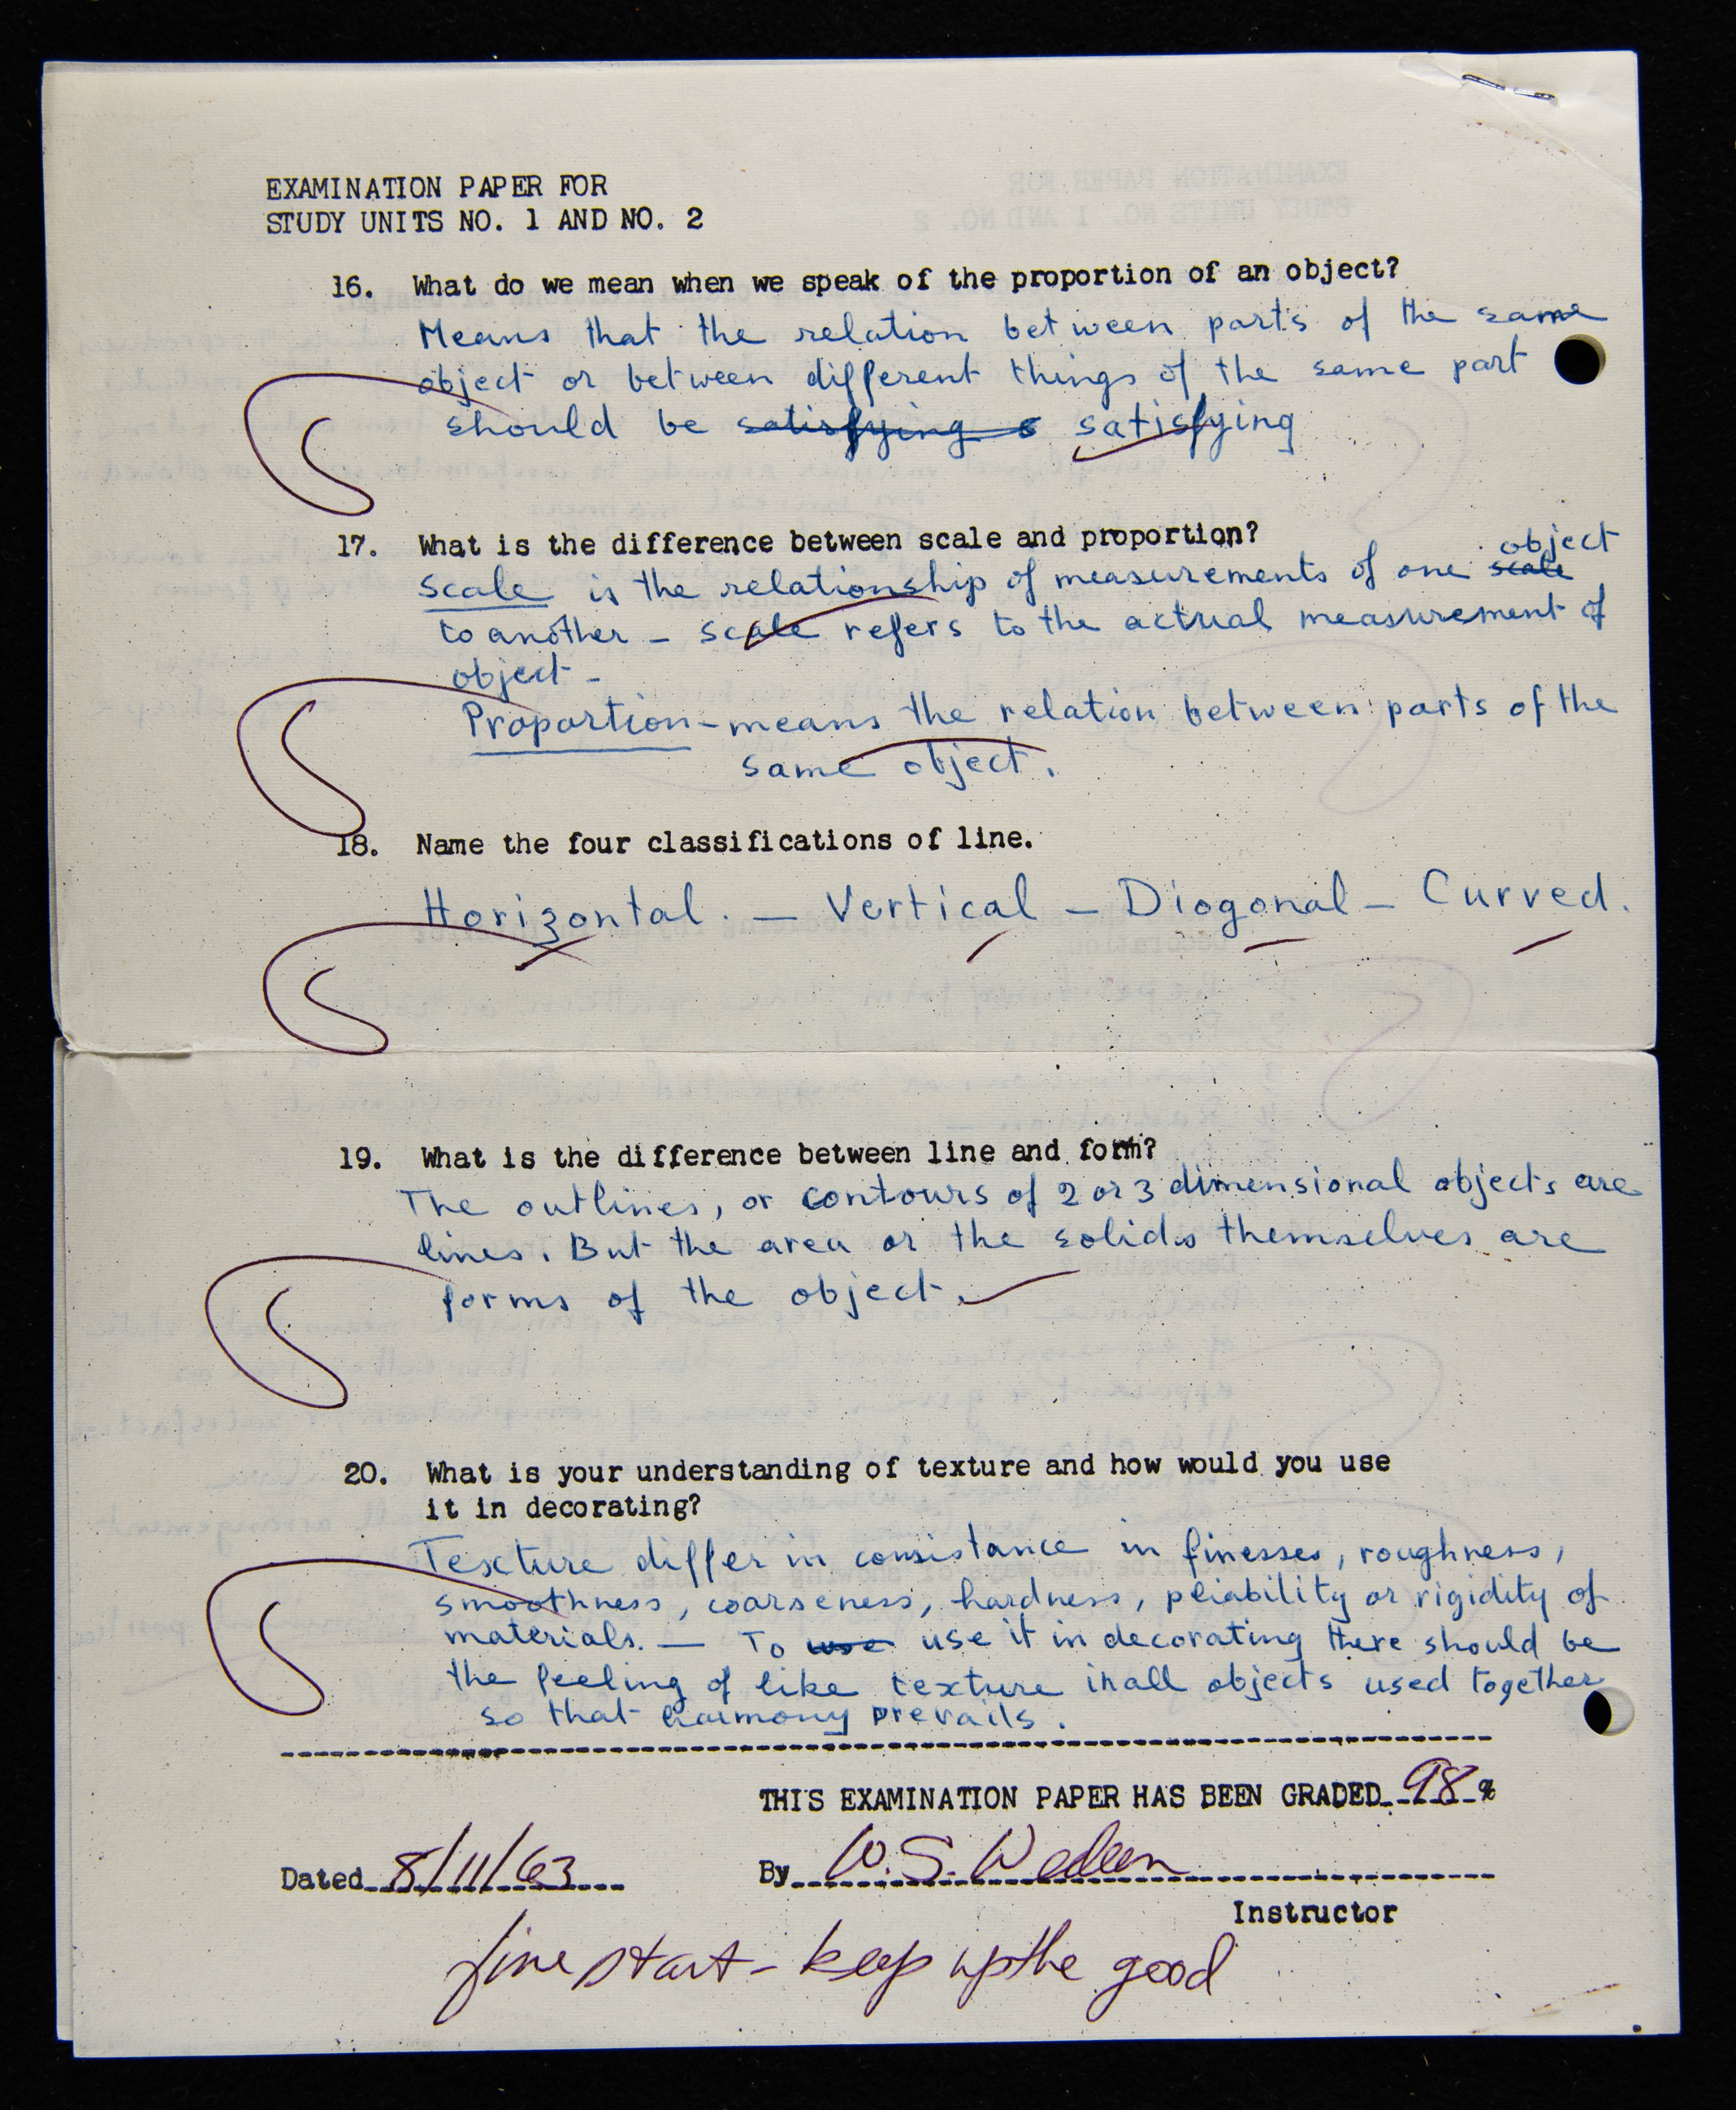 EXAMINATION PAPER FOR
STUDY UNITS NO. 1 AND NO. 2
16. What do we mean when we speak of the proportion of an object?
Means that the relation between parts of the same
object or between different things of the same part
should be satisfying s satisfying
17. What is the difference between scale and proportion?
object
Scale is the relationship of measurements of one scale
to another - scale refers to the actual measurement of
object -
Proportion - means the relation between parts of the
same object.
18. Name the four classifications of line.
Horizontal. - Vertical - Diogonal - Curved.
19. What is the difference between line and form?
The outlines, or contours of 2 or 3 dimensional objects are
lines. But the area or the solids themselves are
forms of the object.
20. What is your understanding of texture and how would you use
it in decorating?
Texture differ in consistance in finesses, roughness,
smoothness, coarseness, hardness, pliability or rigidity of
materials. - To use use it in decorating there should be
the feeling of like texture in all objects used together
so that harmony prevails.
THIS EXAMINATION PAPER HAS BEEN GRADED 98 %
Dated 8/11/63 By W. S. Wedeen
Instructor
fine start - keep up the good